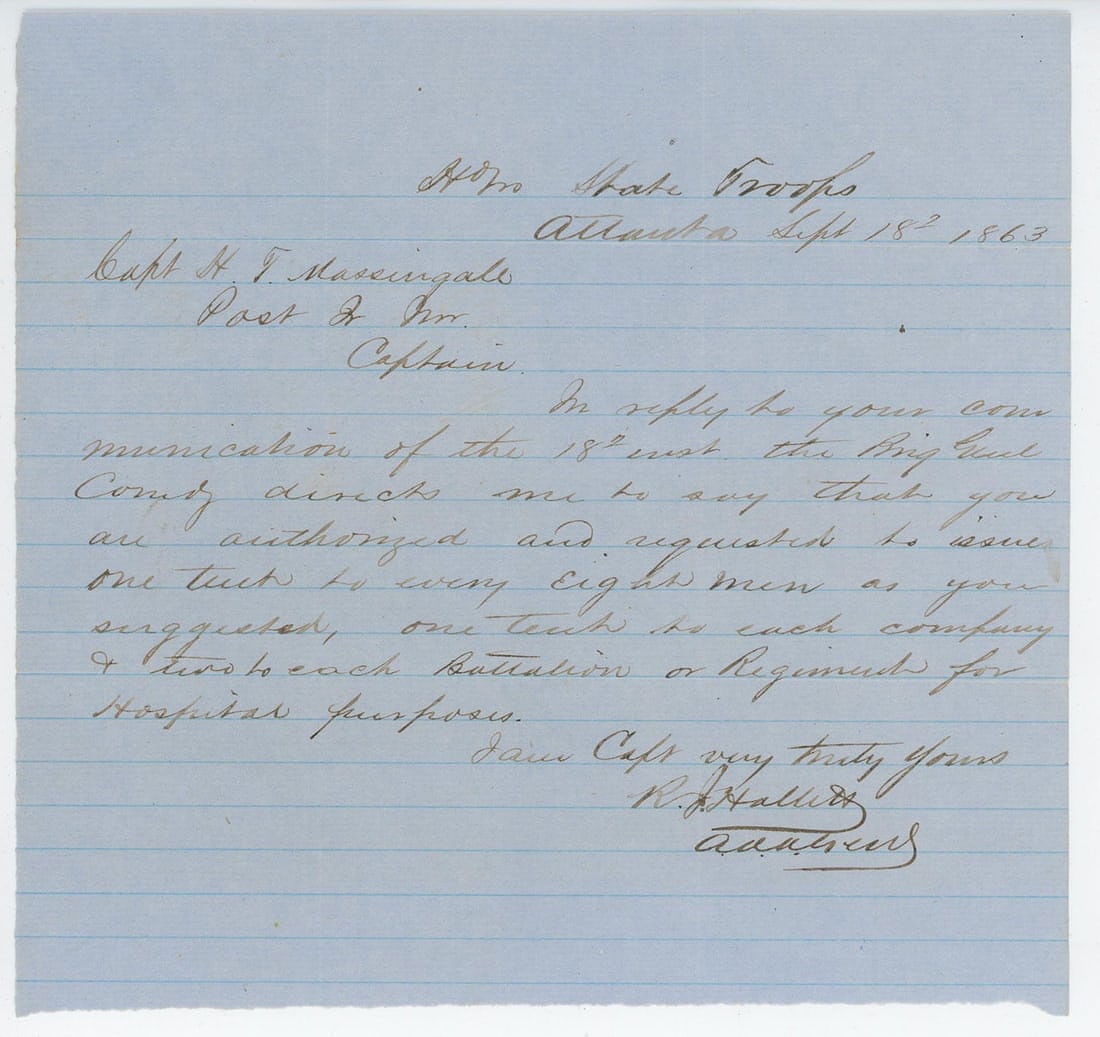 Hd Qrs State Troops
Atlanta Sept 18th 1863
Capt H. T. Massingale
Post Qr Mr.
Captain.
In reply to your com
munication of the 18th inst. the Brig Genl
Comdg directs me to say that you
are authorized and requested to issue
one tent to every Eight men as you
suggested, one tent to each company
& two to each Battalion or Regiment for
Hospital purposes.
I am Capt very truly Yours
R. J. Hallett
A.A.A. Genl